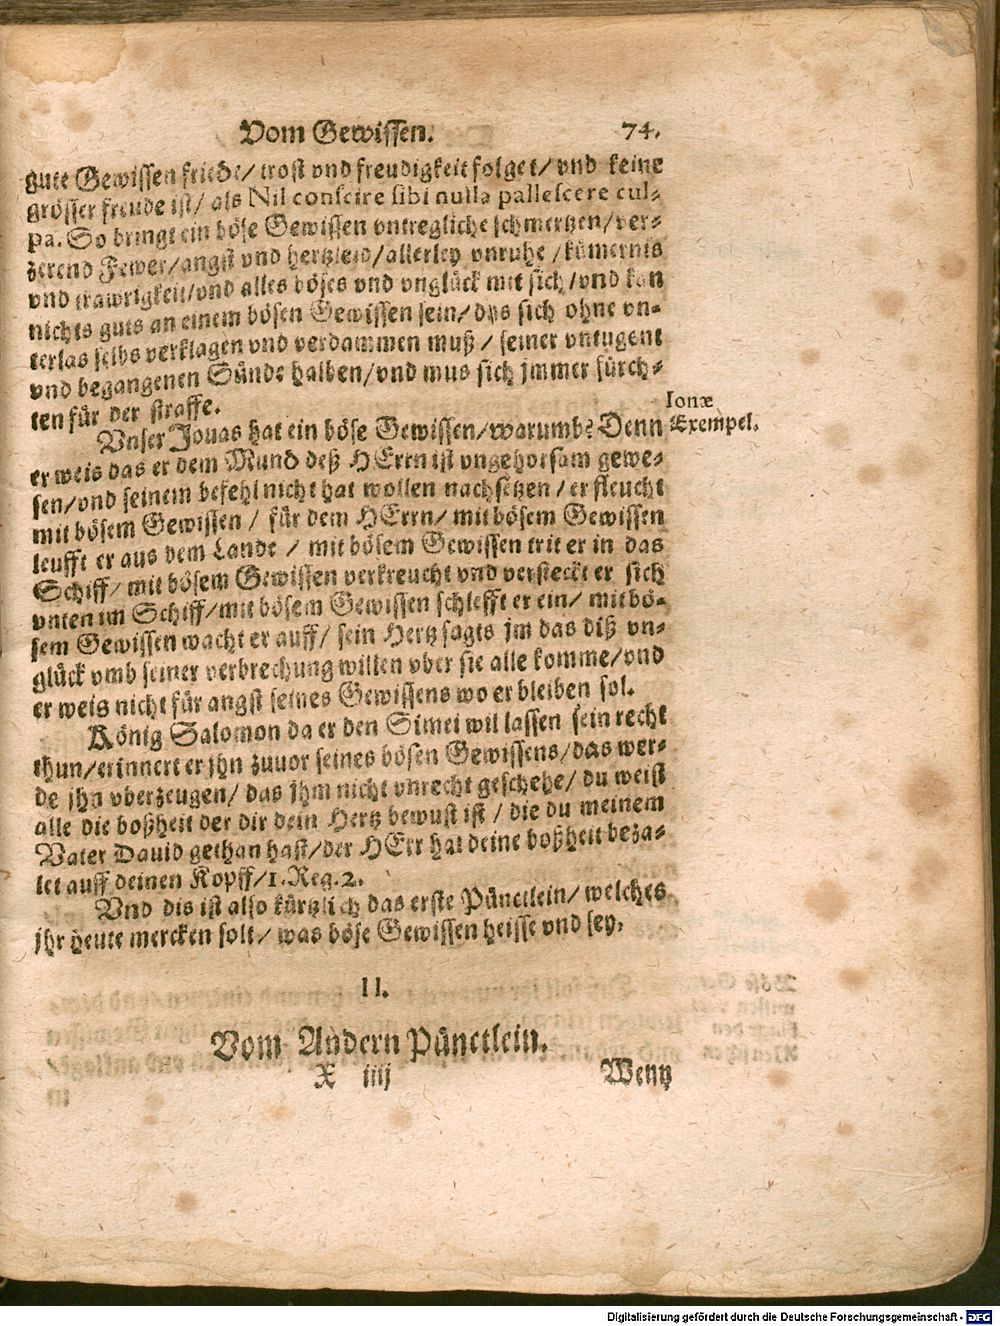 Vom Gewissen. 74.
gute Gewissen friede/ trost vnd freudigkeit folget/ vnd keine
grösser freude ist/ als Nil conscire sibi nulla pallescere cul-
pa. So bringt ein böse Gewissen vntregliche schmertzen/ ver-
zerend Fewer/ angst vnd hertzleid/ allerley vnruhe / kümernis
vnd trawrigkeit/ vnd alles böses vnd vnglück mit sich/ vnd kan
nichts guts an einem bösen Gewissen sein/ das sich ohne vn-
terlas selbs verklagen vnd verdammen muß / seiner vntugent
vnd begangenen Sünde halben/ vnd mus sich jmmer fürch-
ten für der straffe.
Ionæ
Exempel.
Vnser Jonas hat ein böse Gewissen/ warumb? Denn
er weis das er dem Mund deß HErrn ist vngehorsam gewe-
sen/ vnd seinem befehl nicht hat wollen nachsetzen / er fleucht
mit bösem Gewissen / für dem HErrn/ mit bösem Gewissen
leufft er aus dem Lande / mit bösem Gewissen trit er in das
Schiff/ mit bösem Gewissen verkreucht vnd versteckt er sich
vnten im Schiff/ mit bösem Gewissen schlefft er ein/ mit bö-
sem Gewissen wacht er auff/ sein Hertz sagts jm das diß vn-
glück vmb seiner verbrechung willen vber sie alle komme/ vnd
er weis nicht für angst seines Gewissens wo er bleiben sol.
König Salomon da er den Simei wil lassen sein recht
thun/ erinnert er jhn zuuor seines bösen Gewissens/ das wer-
de jhn vberzeugen/ das jhm nicht vnrecht geschehe/ du weist
alle die boßheit der dir dein Hertz bewust ist / die du meinem
Vater Dauid gethan hast/ der HErr hat deine boßheit beza-
let auff deinen Kopff/ 1. Reg. 2.
Vnd dis ist also kürtzlich das erste Pünctlein/ welches
jhr heute mercken solt/ was böse Gewissen heisse vnd sey.
II.
Vom Andern Pünctlein.
X iiij Wenn
Digitalisierung gefördert durch die Deutsche Forschungsgemeinschaft - DFG